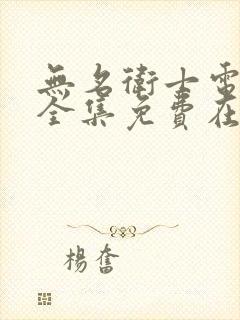 無名衛士電
全集免費在
楊奮